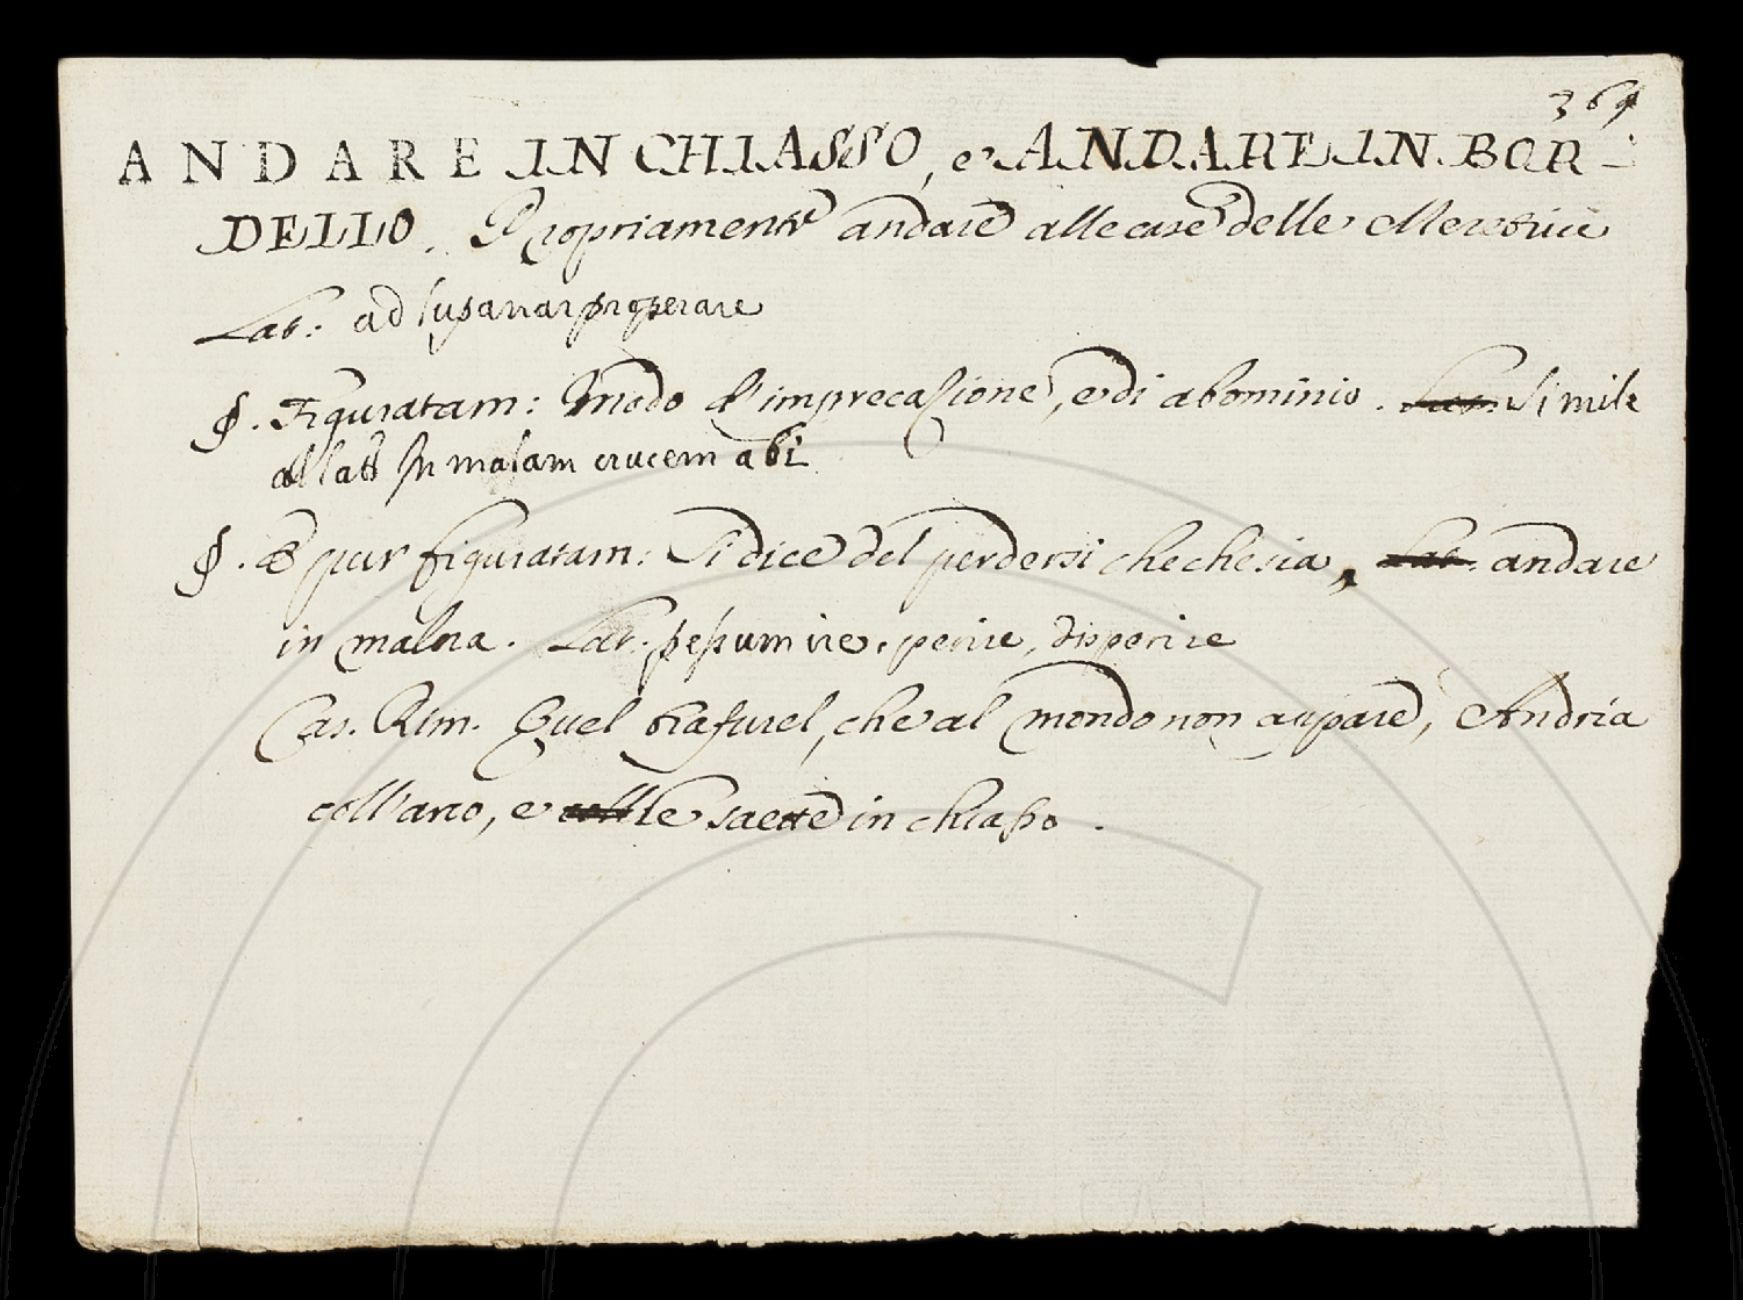 369
ANDARE IN CHIASSO, e ANDARE IN BOR-
DELLO. Propriamente andare alle case delle Meretrici
Lat: ad lupanar properare
§. Figuratam: Modo d'imprecazione, e di abominio. Simile
al lat: In malam crucem abi
§. E pur figuratam: Si dice del perdersi chechesia, andare
in malora. Lat. pessum ire, perire, disperire
Cas. Rim. Quel trafurel, che al mondo non a pare, Andria
coll'arco, e le saette in chiasso.